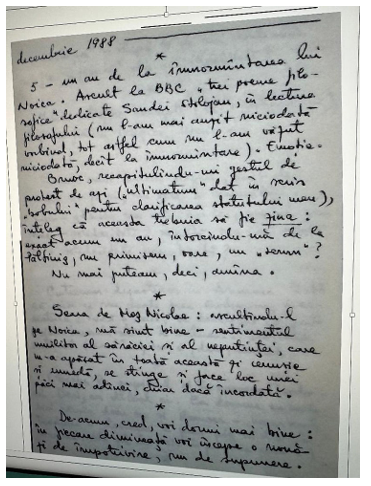 decembrie 1988
*
5 – un an de la înmormîntarea lui
Noica. Ascult la BBC „trei poeme filo-
sofice" dedicate Sandei Stolojan, în lectura
filosofului (nu l-am mai auzit niciodată
vorbind, tot astfel cum nu l-am văzut
niciodată, decît la înmormîntare). Emoție.
Brusc, recapitulîndu-mi gestul de
protest de azi („ultimatum" dat în scris
„bobului" pentru clarificarea statutului meu),
înțeleg că aceasta trebuia să fie ziua:
exact acum un an, întorcîndu-mă de la
Păltiniș, nu primisem, oare, un „semn"?
Nu mai puteam, deci, amîna.
*
Seara de Moș Nicolae: ascultîndu-l
pe Noica, mă simt bine – sentimentul
umilitor al sărăciei și al neputinței, care
m-a apăsat în toată această zi cenușie
și umedă, se stinge și face loc unei
păci mai adînci, chiar dacă încordată.
*
De-acum, cred, voi dormi mai bine:
în fiecare dimineață voi începe o nouă
zi de împotrivire, nu de supunere.